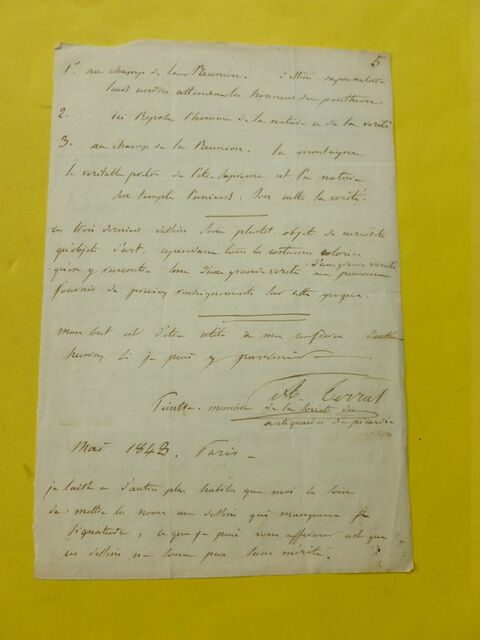 5
1° au champ de la Réunion. dessiné d'après nature
leurs cendres attendent les honneurs du panthéon
2. ici Repose l'homme de la nature et de la vérité
3. au champ de la Réunion. la montagne
le veritable prêtre de l'être suprême est la nature
son temple l'univers. son culte la vérité.
ces trois derniers dessins sont plustot objets de curiosité
qu'objets d'art. cependant tous les costumes coloriés
qu'on y rencontre sont d'une grande vérité et peuvent
d'une grande variété
fournir de précieux renseignements sur cette époque.
mon but est d'être utile à mes
heureux si je puis y parvenir
A. Terral
Peintre. membre de la société des
antiquaires de picardie
Mai 1842. Paris
je laisse a d'autres plus habiles que moi le soin
de mettre les noms aux dessins qui manquent de
signature, ce que je puis vous affirmer est que
ces dessins ne sont pas sans mérite.